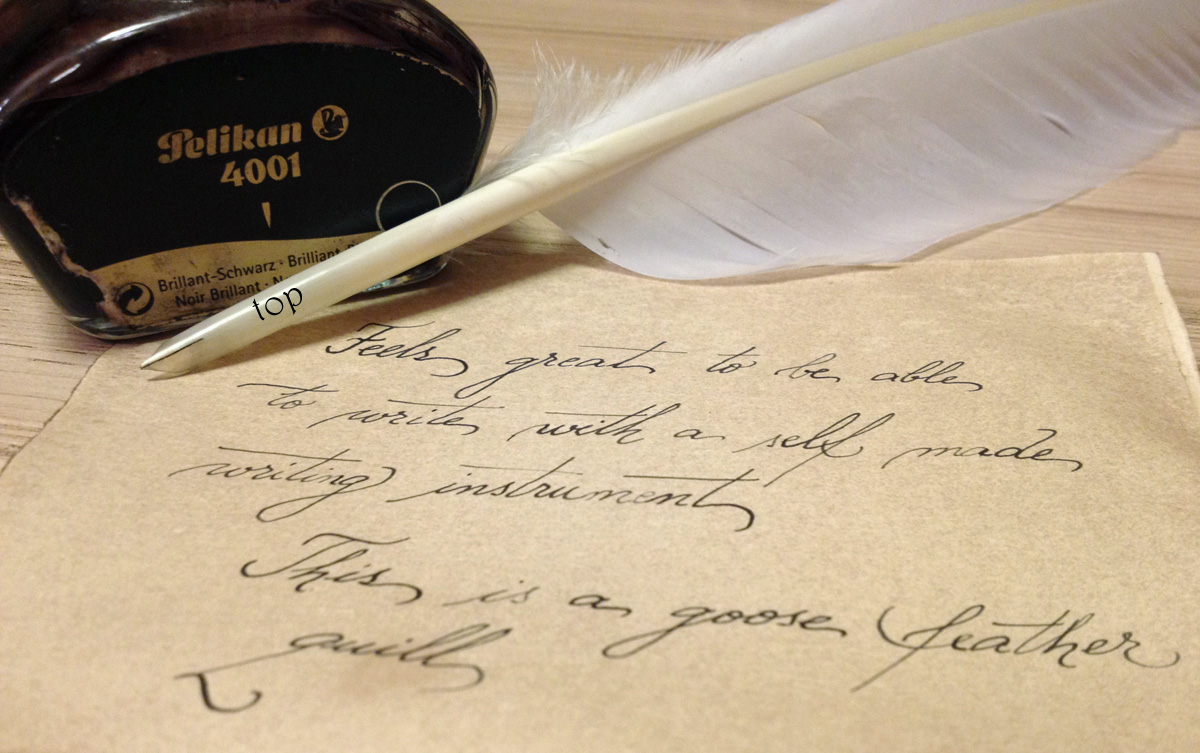 Pelikan
4001
Brillant-Schwarz · Brilliant
Noir Brillant ·
top
Feels great to be able
to write with a self made
writing instrument
This is a goose feather
quill